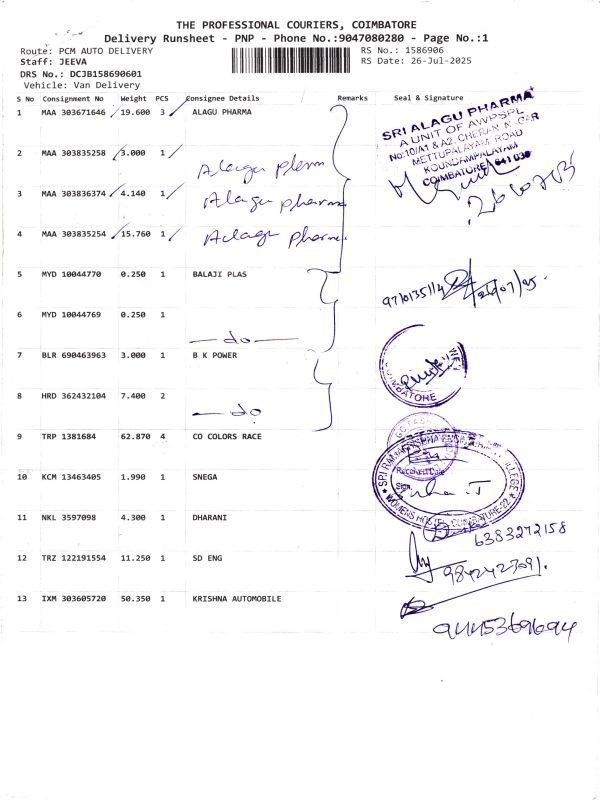 THE PROFESSIONAL COURIERS, COIMBATORE
Delivery Runsheet - PNP - Phone No.:9047080280 - Page No.:1
Route: PCM AUTO DELIVERY RS No.: 1586906
Staff: JEEVA RS Date: 26-Jul-2025
DRS No.: DCJB158690601
Vehicle: Van Delivery
S No Consignment No Weight PCS Consignee Details Remarks Seal & Signature
1 MAA 303671646 19.600 3 ALAGU PHARMA
SRI ALAGU PHARMA
A UNIT OF AWPSPL
No:10/A1 & A2, CHERAN NAGAR
METTUPALAYAM ROAD
KOUNDAMPALAYAM
COIMBATORE 641 030
2 MAA 303835258 3.000 1
Alagu
3 MAA 303836374 4.140 1 Alagu pharma
4 MAA 303835254 15.760 1 Alagu pharma
5 MYD 10044770 0.250 1 BALAJI PLAS
6 MYD 10044769 0.250 1
do
7 BLR 690463963 3.000 1 B K POWER
COIMBATORE
8 HRD 362432104 7.400 2
do
9 TRP 1381684 62.870 4 CO COLORS RACE
Received Date
10 KCM 13463405 1.990 1 SNEGA
Sign.
WOMENS HOSTEL COIMBATORE-22
11 NKL 3597098 4.300 1 DHARANI
6383272158
12 TRZ 122191554 11.250 1 SD ENG
9842427091.
13 IXM 303605720 50.350 1 KRISHNA AUTOMOBILE